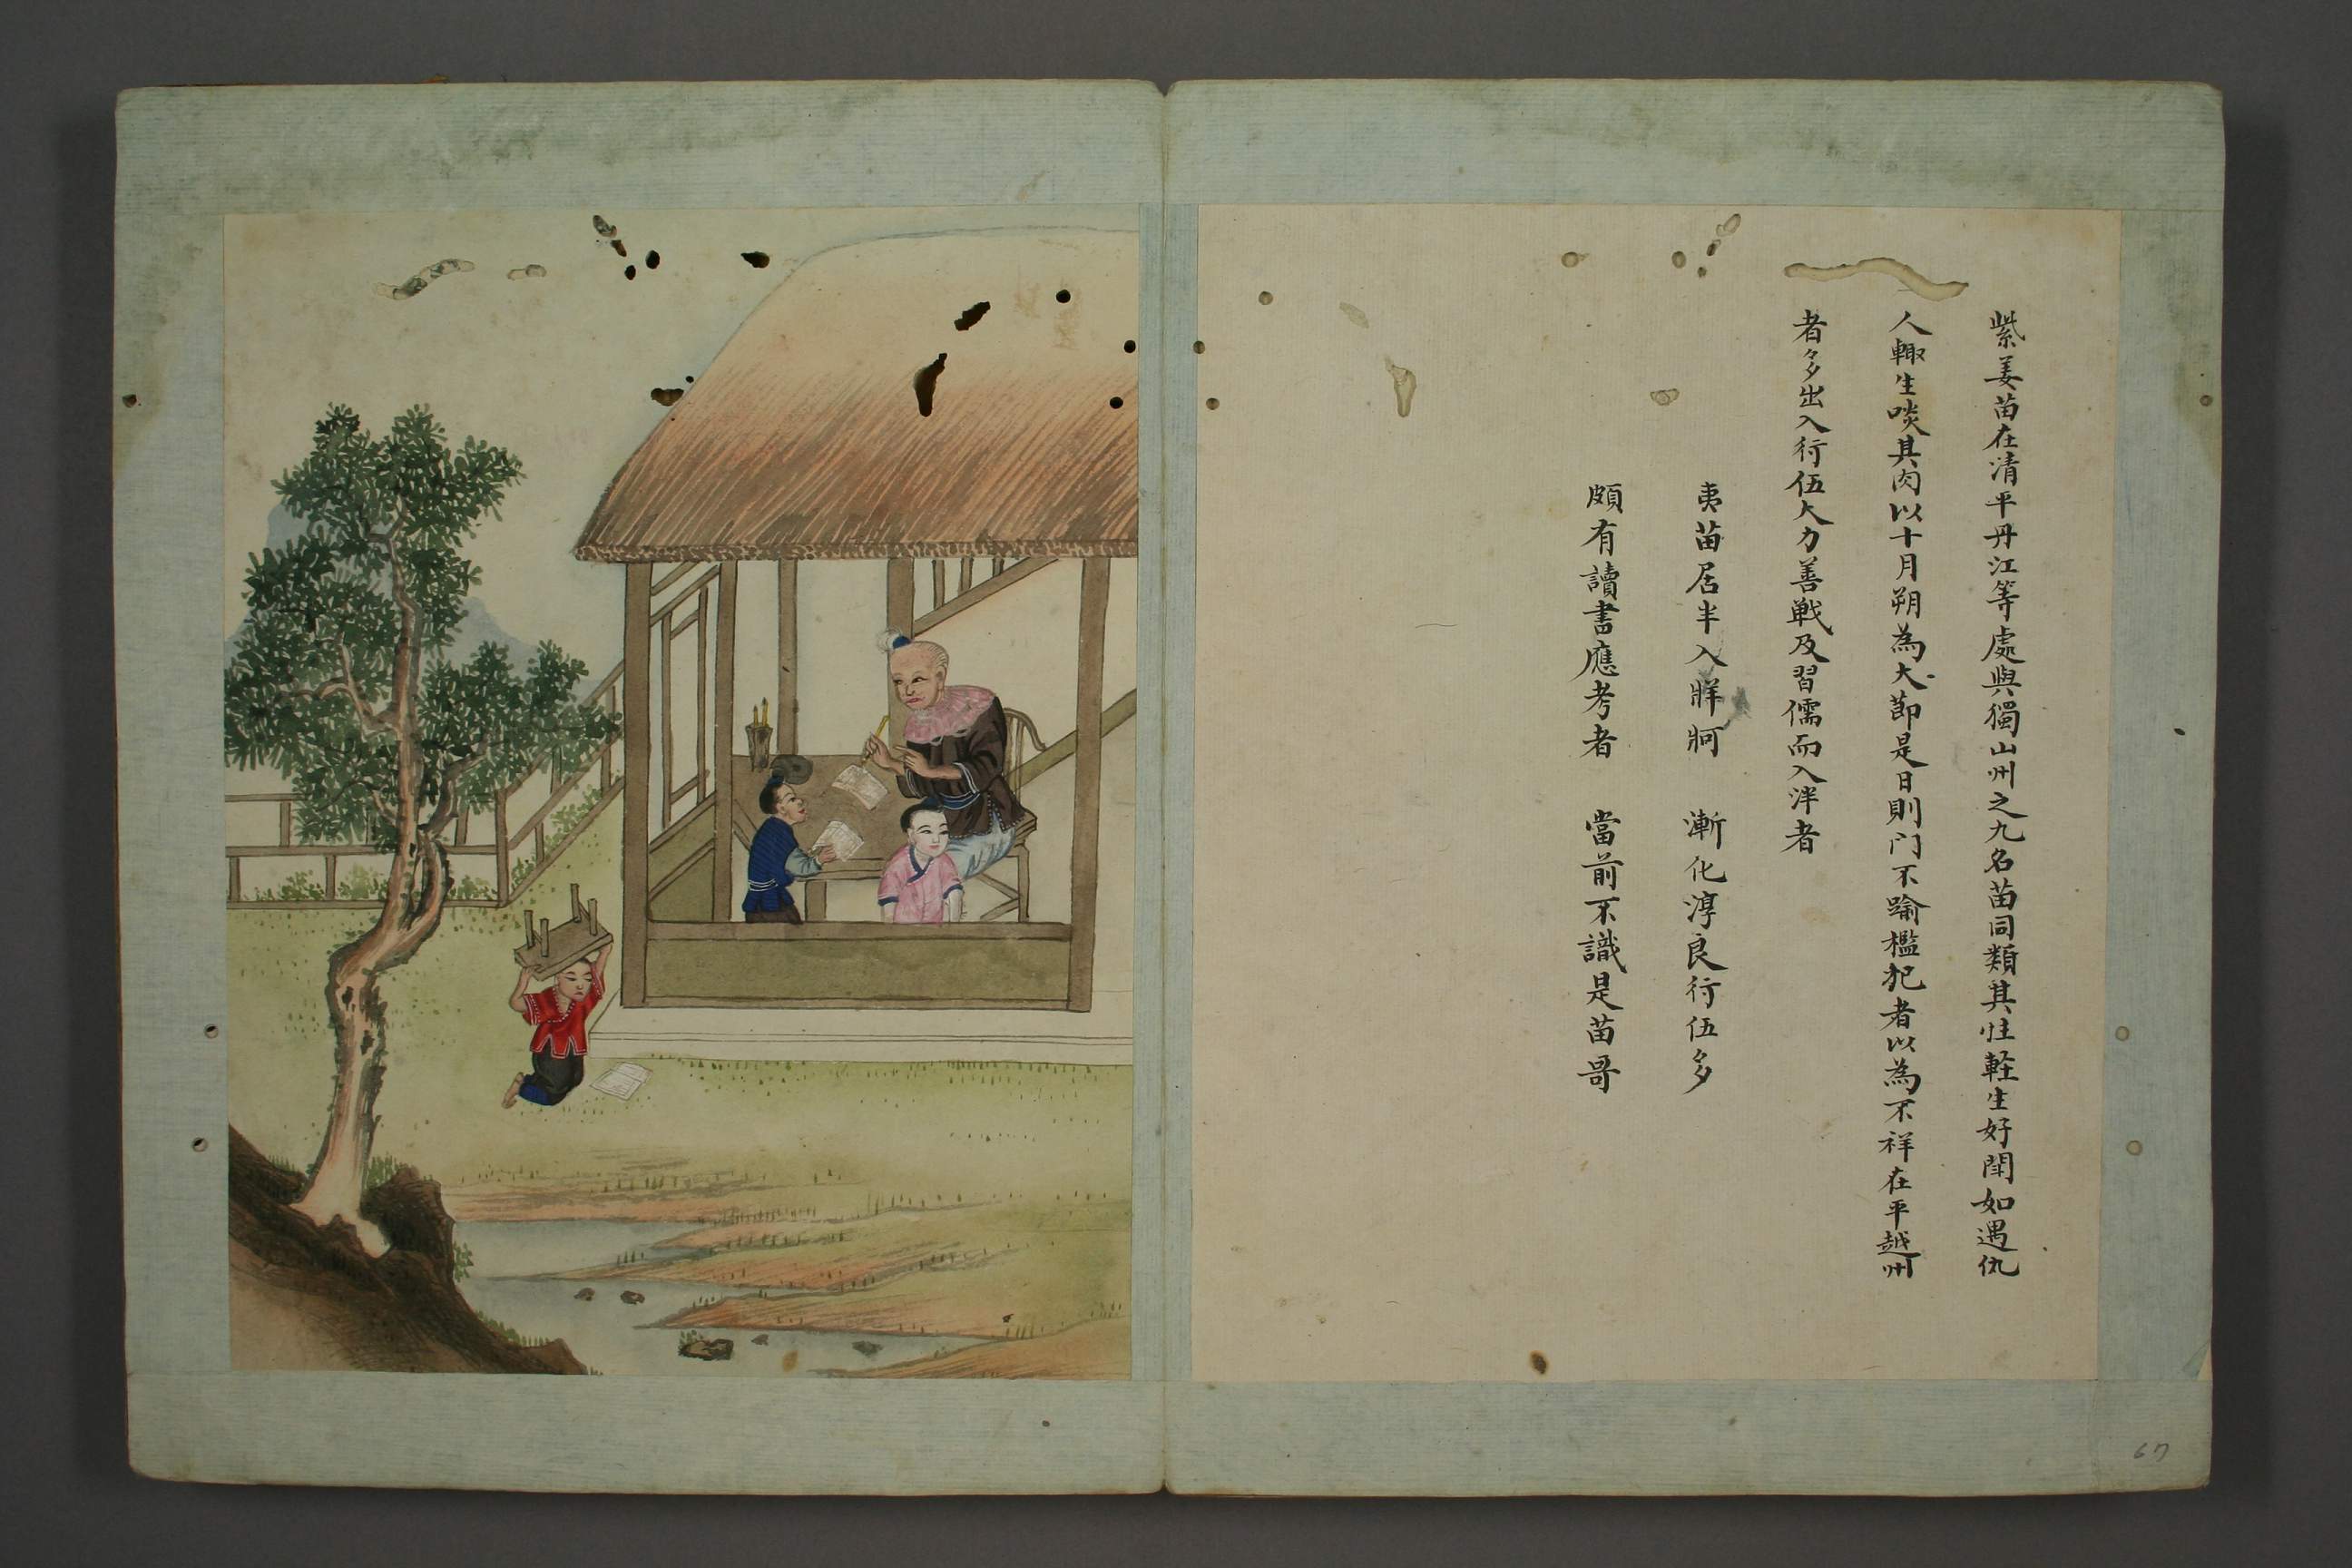 紫姜苗在清平丹江等處與獨山州之九名苗同類其性輕生好鬪如遇仇
人輙生啖其肉以十月朔為大節是日則门不踰檻犯者以為不祥在平越州
者多出入行伍大力善戰及習儒而入泮者
夷苗居半入牂牁 漸化淳良行伍多
頗有讀書應考者 當前不識是苗哥
67